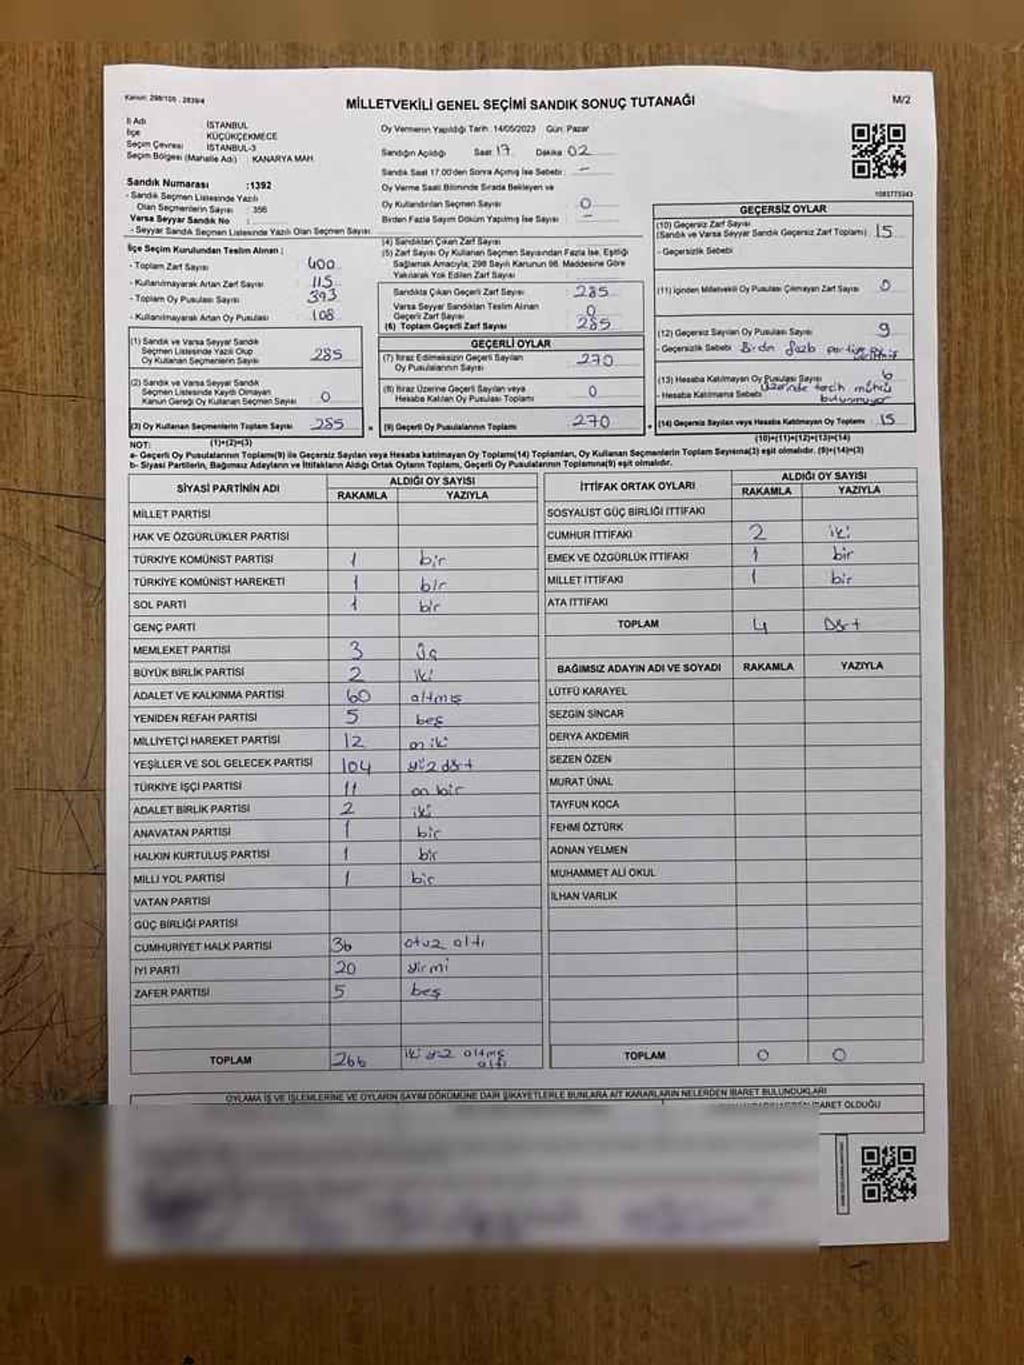 Kanun: 298/105 , 2839/4
MİLLETVEKİLİ GENEL SEÇİMİ SANDIK SONUÇ TUTANAĞI
M/2
İl Adı İSTANBUL
İlçe KÜÇÜKÇEKMECE
Seçim Çevresi İSTANBUL-3
Seçim Bölgesi (Mahalle Adı) : KANARYA MAH.
Sandık Numarası :1392
- Sandık Seçmen Listesinde Yazılı
Olan Seçmenlerin Sayısı : 356
Varsa Seyyar Sandık No :
- Seyyar Sandık Seçmen Listesinde Yazılı Olan Seçmen Sayısı:
Oy Vermenin Yapıldığı Tarih :14/05/2023 Gün: Pazar
Sandığın Açıldığı Saat 17 Dakika 02
Sandık Saat 17.00'den Sonra Açılmış İse Sebebi: -
Oy Verme Saati Bitiminde Sırada Bekleyen ve
Oy Kullandırılan Seçmen Sayısı 0
Birden Fazla Sayım Döküm Yapılmış İse Sayısı -
İlçe Seçim Kurulundan Teslim Alınan :
- Toplam Zarf Sayısı 400
- Kullanılmayarak Artan Zarf Sayısı 115
- Toplam Oy Pusulası Sayısı 393
- Kullanılmayarak Artan Oy Pusulası 108
(1) Sandık ve Varsa Seyyar Sandık
Seçmen Listesinde Yazılı Olup
Oy Kullanan Seçmenlerin Sayısı 285
(2) Sandık ve Varsa Seyyar Sandık
Seçmen Listesinde Kayıtlı Olmayan
Kanun Gereği Oy Kullanan Seçmen Sayısı 0
(3) Oy Kullanan Seçmenlerin Toplam Sayısı 285
(1)+(2)=(3)
(4) Sandıktan Çıkan Zarf Sayısı
(5) Zarf Sayısı Oy Kullanan Seçmen Sayısından Fazla İse, Eşitliği
Sağlamak Amacıyla; 298 Sayılı Kanunun 98. Maddesine Göre
Yakılarak Yok Edilen Zarf Sayısı
Sandıkta Çıkan Geçerli Zarf Sayısı 285
Varsa Seyyar Sandıktan Teslim Alınan
Geçerli Zarf Sayısı 0
(6) Toplam Geçerli Zarf Sayısı 285
GEÇERLİ OYLAR
(7) İtiraz Edilmeksizin Geçerli Sayılan
Oy Pusulalarının Sayısı 270
(8) İtiraz Üzerine Geçerli Sayılan veya
Hesaba Katılan Oy Pusulası Toplamı 0
= (9) Geçerli Oy Pusulalarının Toplamı 270
1083775343
GEÇERSİZ OYLAR
(10) Geçersiz Zarf Sayısı
(Sandık ve Varsa Seyyar Sandık Geçersiz Zarf Toplamı) 15
- Geçersizlik Sebebi
(11) İçinden Milletvekili Oy Pusulası Çıkmayan Zarf Sayısı 0
(12) Geçersiz Sayılan Oy Pusulası Sayısı 9
- Geçersizlik Sebebi Birden fazla partiye
(13) Hesaba Katılmayan Oy Pusulası Sayısı 6
- Hesaba Katılmama Sebebi Üzerinde tercih mührü
bulunmuyor
+ (14) Geçersiz Sayılan veya Hesaba Katılmayan Oy Toplamı 15
(10)+(11)+(12)+(13)=(14)
NOT:
a- Geçerli Oy Pusulalarının Toplamı(9) ile Geçersiz Sayılan veya Hesaba katılmayan Oy Toplamı(14) Toplamları, Oy Kullanan Seçmenlerin Toplam Sayısına(3) eşit olmalıdır. (9)+(14)=(3)
b- Siyasi Partilerin, Bağımsız Adayların ve İttifakların Aldığı Ortak Oyların Toplamı, Geçerli Oy Pusulalarının Toplamına(9) eşit olmalıdır.
SİYASİ PARTİNİN ADI ALDIĞI OY SAYISI
RAKAMLA YAZIYLA
MİLLET PARTİSİ
HAK VE ÖZGÜRLÜKLER PARTİSİ
TÜRKİYE KOMÜNİST PARTİSİ 1 bir
TÜRKİYE KOMÜNİST HAREKETİ 1 bir
SOL PARTİ 1 bir
GENÇ PARTİ
MEMLEKET PARTİSİ 3 üç
BÜYÜK BİRLİK PARTİSİ 2 iki
ADALET VE KALKINMA PARTİSİ 60 altmış
YENİDEN REFAH PARTİSİ 5 beş
MİLLİYETÇİ HAREKET PARTİSİ 12 on iki
YEŞİLLER VE SOL GELECEK PARTİSİ 104 yüz dört
TÜRKİYE İŞÇİ PARTİSİ 11 on bir
ADALET BİRLİK PARTİSİ 2 iki
ANAVATAN PARTİSİ 1 bir
HALKIN KURTULUŞ PARTİSİ 1 bir
MİLLİ YOL PARTİSİ 1 bir
VATAN PARTİSİ
GÜÇ BİRLİĞİ PARTİSİ
CUMHURİYET HALK PARTİSİ 36 otuz altı
İYİ PARTİ 20 yirmi
ZAFER PARTİSİ 5 beş
TOPLAM 266 iki yüz altmış
altı
İTTİFAK ORTAK OYLARI ALDIĞI OY SAYISI
RAKAMLA YAZIYLA
SOSYALİST GÜÇ BİRLİĞİ İTTİFAKI
CUMHUR İTTİFAKI 2 iki
EMEK VE ÖZGÜRLÜK İTTİFAKI 1 bir
MİLLET İTTİFAKI 1 bir
ATA İTTİFAKI
TOPLAM 4 Dört
BAĞIMSIZ ADAYIN ADI VE SOYADI RAKAMLA YAZIYLA
LÜTFÜ KARAYEL
SEZGİN SİNCAR
DERYA AKDEMİR
SEZEN ÖZEN
MURAT ÜNAL
TAYFUN KOCA
FEHMİ ÖZTÜRK
ADNAN YELMEN
MUHAMMET ALİ OKUL
İLHAN VARLIK
TOPLAM 0 0
OYLAMA İŞ VE İŞLEMLERİNE VE OYLARIN SAYIM DÖKÜMÜNE DAİR ŞİKAYETLERLE BUNLARA AİT KARARLARIN NELERDEN İBARET BULUNDUKLARI
OLDUĞU